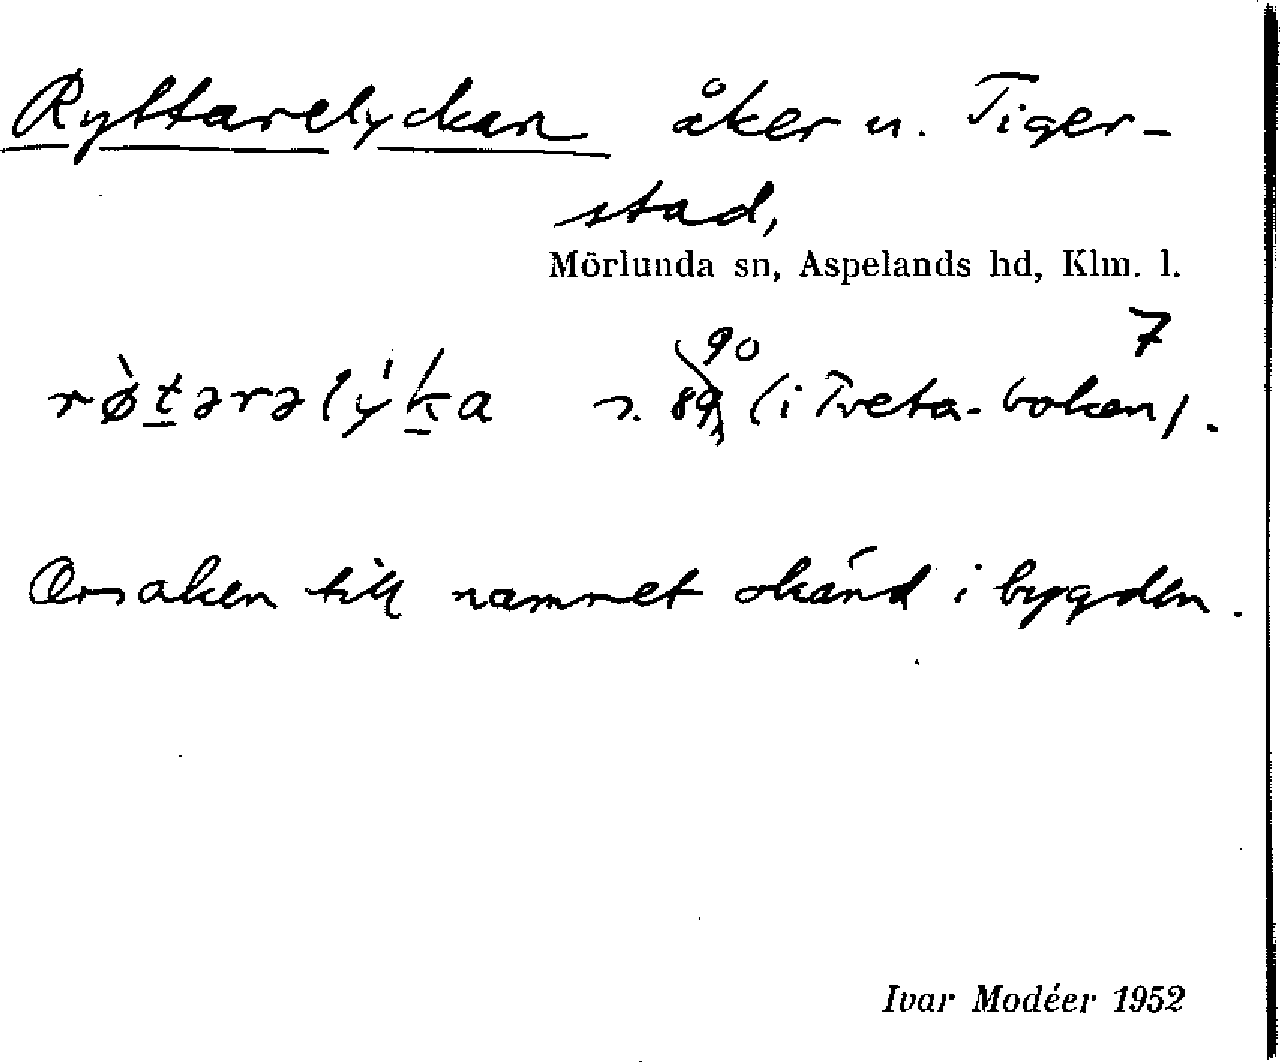 Ryttarelyckan åker n. Tiger-
stad,
Mörlunda sn, Aspelands hd, Klm. l.
7
90
rø̀t̲ərəlý́k̲a s. 89 (i Tveta-boken).
Orsaken till namnet okänd i bygden.
Ivar Modéer 1952